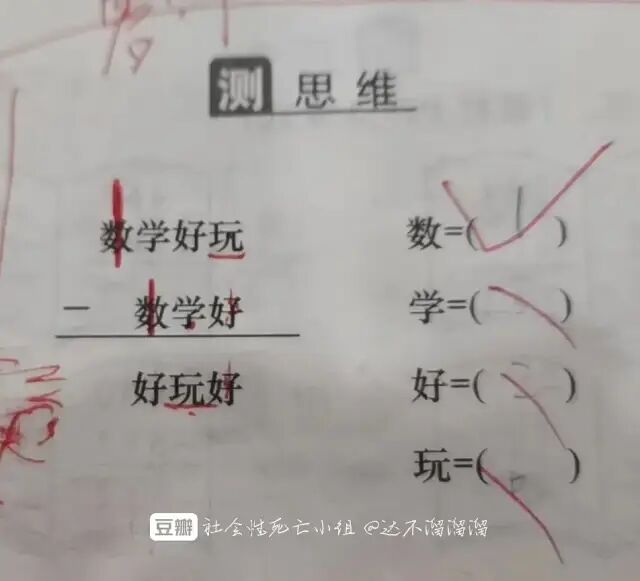 测 思维
数学好玩
- 数学好
好玩好
数=( 1 )
学=( )
好=( )
玩=( )
豆瓣 社会性死亡小组 @达不溜溜溜